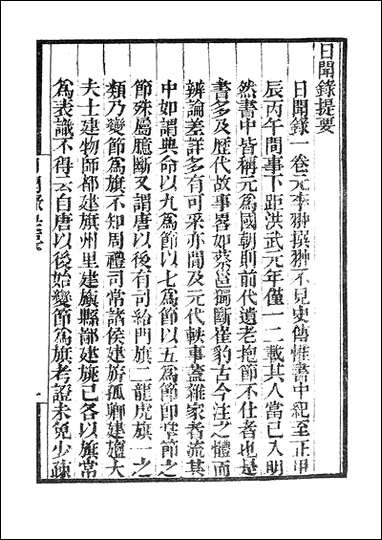 日聞錄提要
日聞錄一卷元李翀撰翀不見史傳惟書中紀至正甲
辰丙午間事下距洪武元年僅一二載其人當已入明
然書中皆稱元為國朝則前代遺老抱節不仕者也是
書多及歷代故事畧如蔡邕獨斷崔豹古今注之體而
辨論差詳多有可采亦間及元代軼事蓋雜家者流其
中如謂典命以九為節以七為節以五為節卽掌節之
節殊屬臆斷又謂唐以後有司給門旗二龍虎旗一之
類乃變節為旗不知周禮司常諸侯建旂孤卿建旜大
夫士建物師都建旗州里建旟縣鄙建旐已各以旗常
為表識不得云自唐以後始變節為旗考證未免少疎